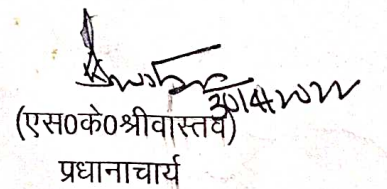 30/4/2022
(एस0के0श्रीवास्तव)
प्रधानाचार्य